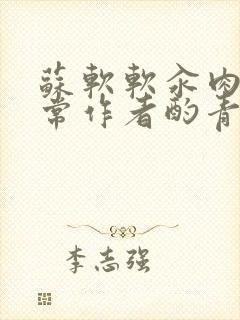 蘇軟軟汆肉
常作者酌青
李志强